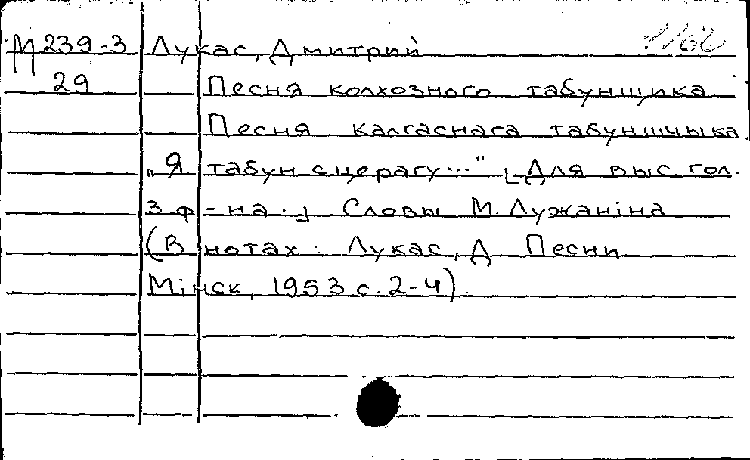 М 239-3 Лукас, Дмитрий
29 Песня колхозного табунщика
Песня калгаснага табуншчыка.
„Я табун сцерагу..." [Для выс. гол.
з ф-на.] Словы М. Лужаніна
(В нотах: Лукас, Д Песни
Мінск, 1953 с. 2-4).